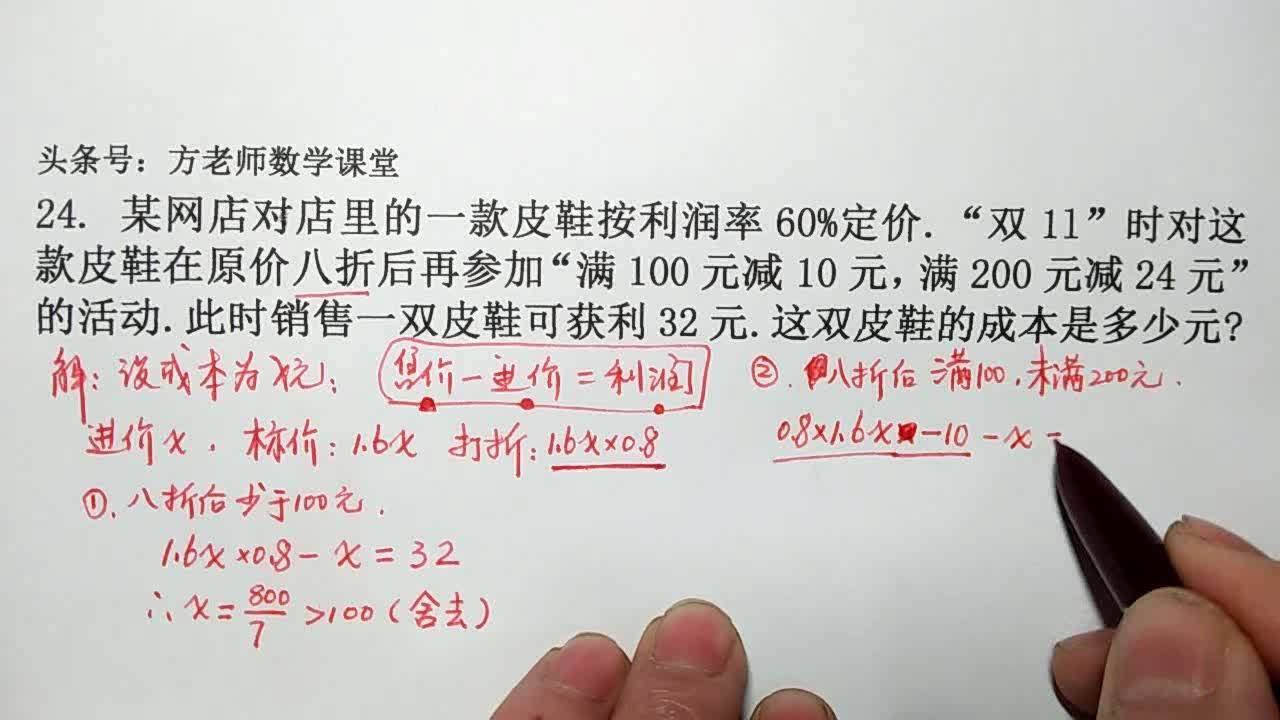 头条号：方老师数学课堂
24. 某网店对店里的一款皮鞋按利润率 60%定价.“双 11”时对这
款皮鞋在原价八折后再参加“满 100 元减 10 元，满 200 元减 24 元”
的活动.此时销售一双皮鞋可获利 32 元.这双皮鞋的成本是多少元?
解：设成本为x元；
售价－进价＝利润
进价x . 标价：1.6x 打折：1.6x×0.8
①. 八折后少于100元.
1.6x×0.8－x＝32
∴x＝800/7＞100（舍去）
②. 八折后满100，未满200元.
0.8×1.6x－10－x＝